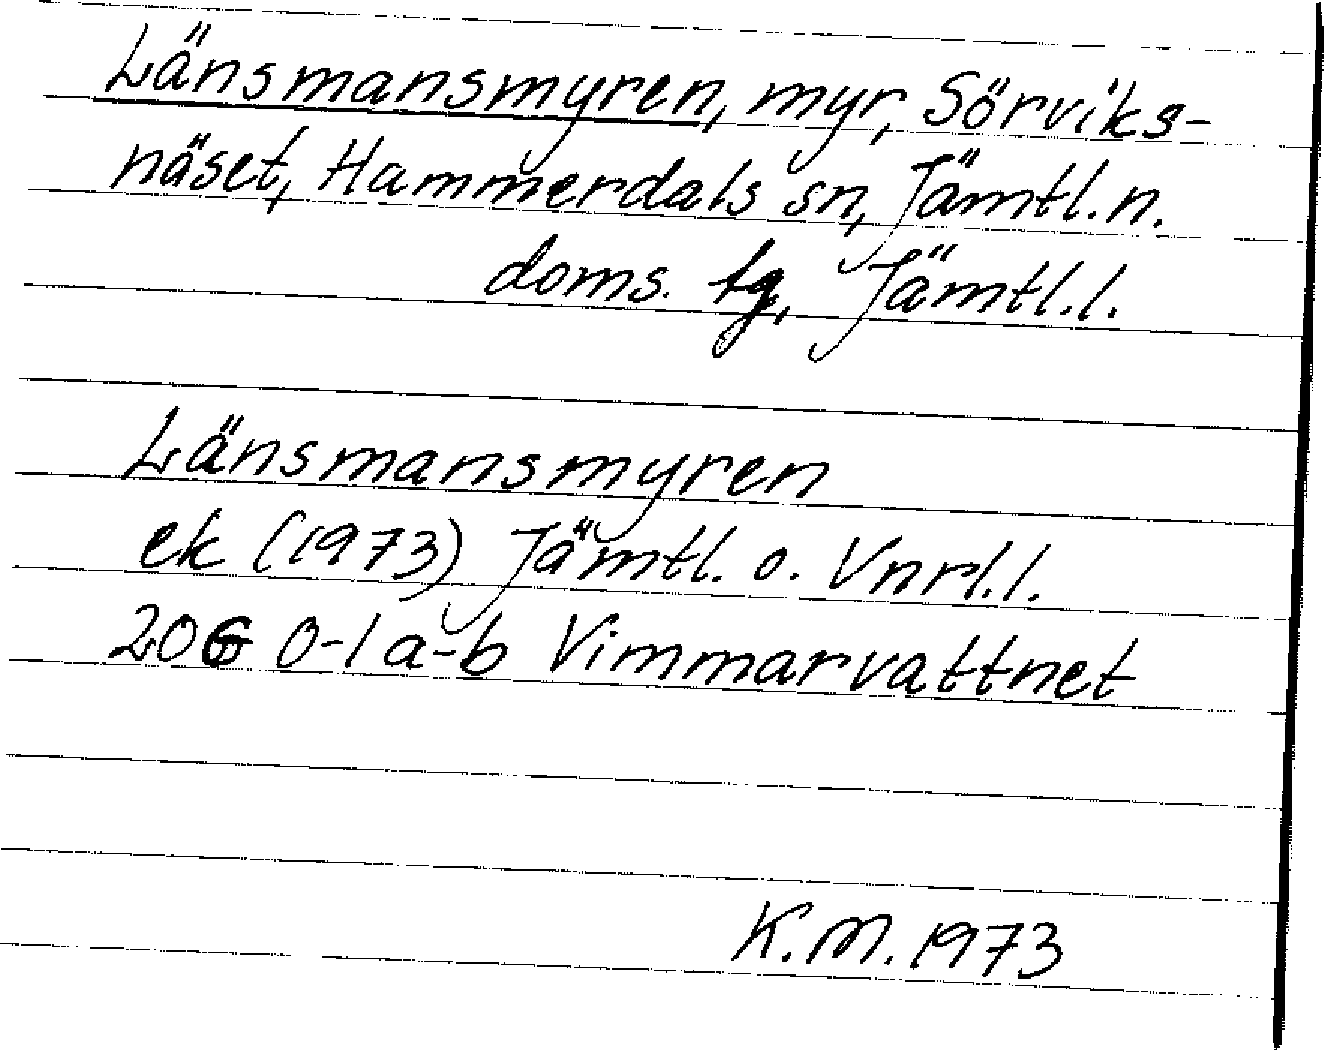 Länsmansmyren, myr, Sörviks-
näset, Hammerdals sn, Jämtl. n.
doms. tg, Jämtl. l.
Länsmansmyren
ek (1973) Jämtl. o. Vnrl. l.
20G 0-1 a-b Vimmarvattnet
K.M. 1973